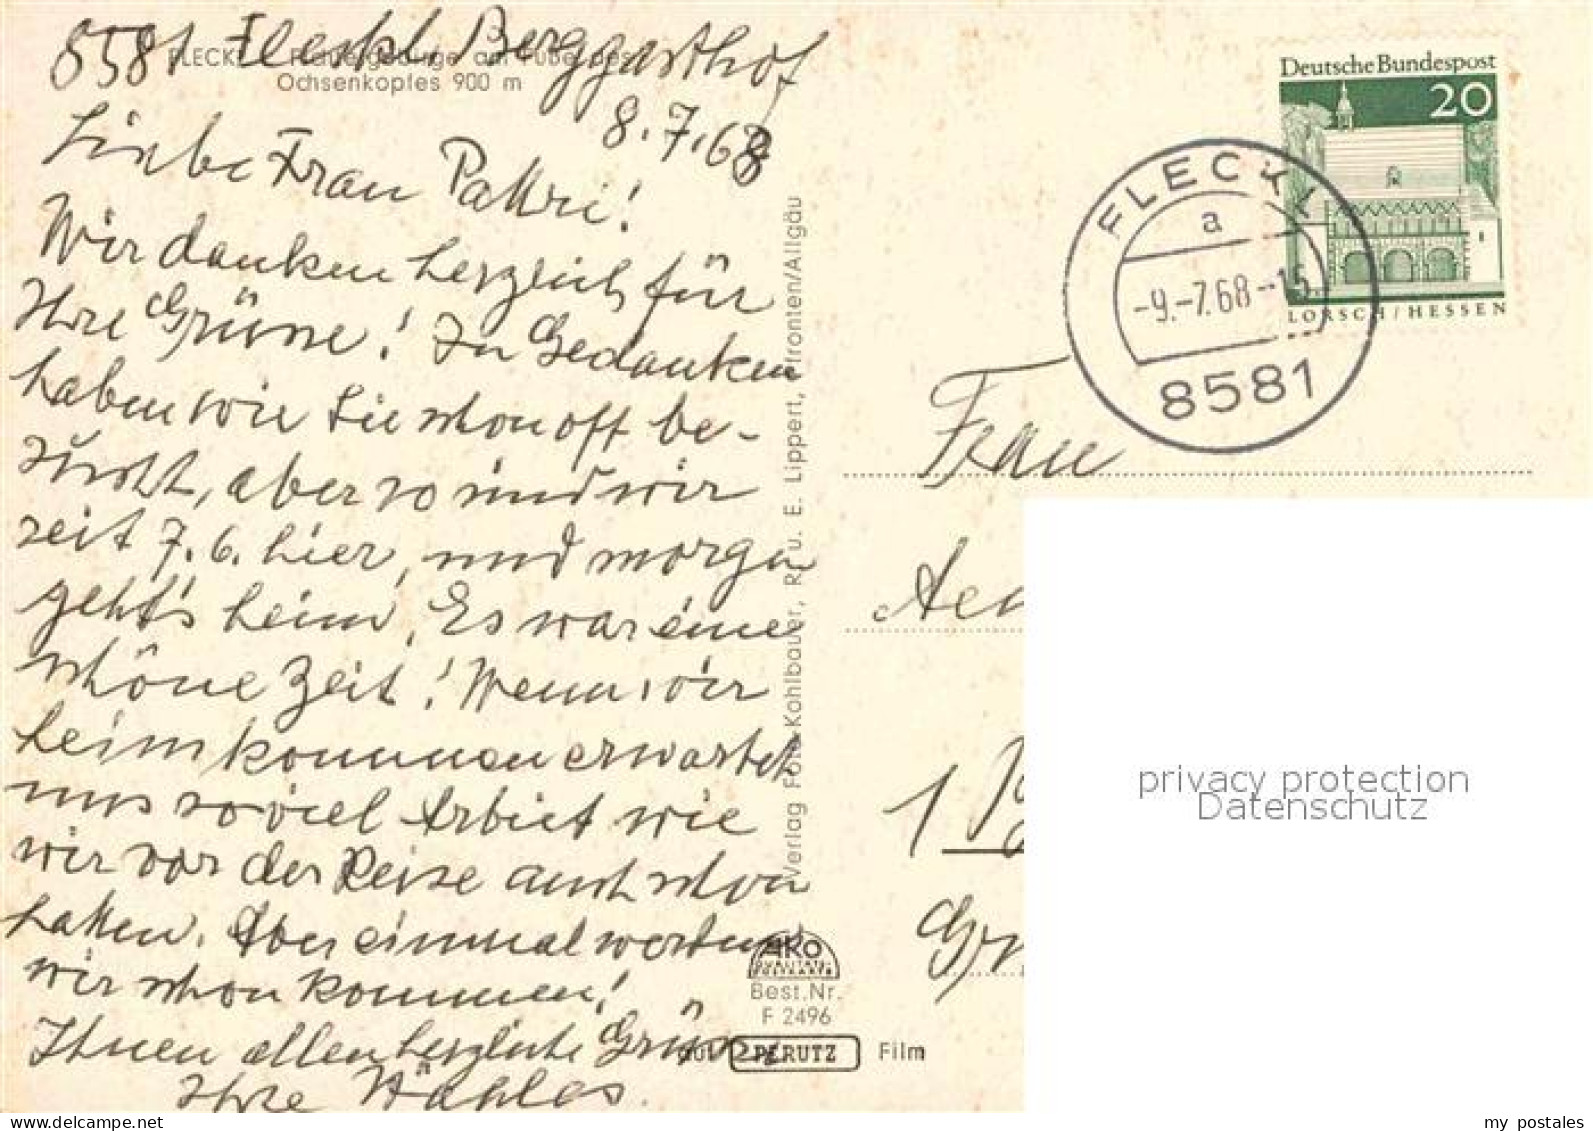 8581 Fleckl, Berggasthof
FLECKL Fichtelgebirge am Fuße des
Ochsenkopfes 900 m
8.7.68
Liebe Frau
Wir danken herzlich für
Ihre Grüsse! In Gedanken
haben wir Sie schon oft be-
sucht, aber so sind wir
seit 7.6. hier, und morgen
geht's heim. Es war eine
schöne Zeit! Wenn wir
heim kommen erwartet
uns so viel Arbeit wie
wir vor der Reise auch schon
hatten. Aber einmal werden
wir schon kommen!
Ihnen allen herzliche Grüsse
Ihre
Verlag Foto-Kohlbauer, R. u. E. Lippert, Pfronten/Allgäu
AKO
QUALITÄTS-
POSTKARTE
Best.Nr.
F 2496
auf PERUTZ Film
Deutsche Bundespost
20
LORSCH/HESSEN
FLECKL
a
-9.-7.68--15
8581
Frau
1
privacy protection
Datenschutz
my postales